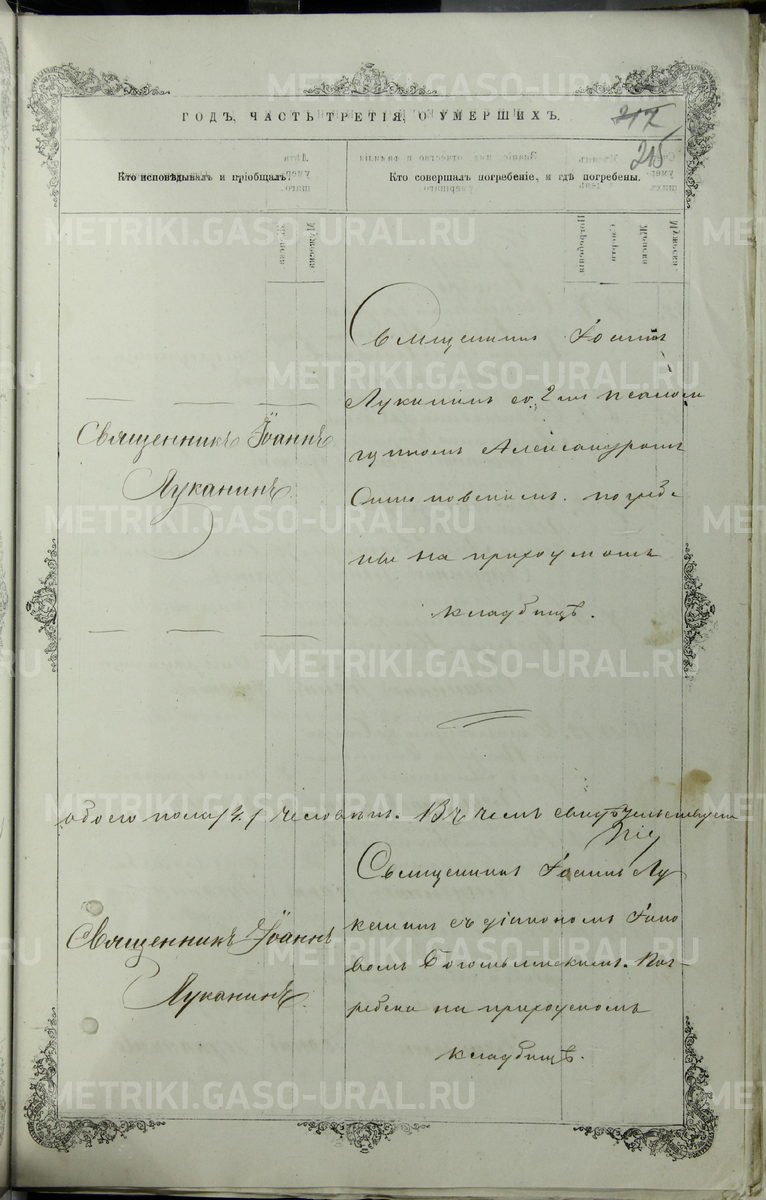 ГОДЪ, ЧАСТЬ ТРЕТІЯ, О УМЕРШИХЪ.
217
215
Кто исповѣдывалъ и пріобщалъ.
Кто совершалъ погребеніе, и гдѣ погребены.
Священникъ Іоаннъ
Луканинъ со 2мъ псаломщикомъ Александромъ
погребены на приходскомъ
кладбищѣ.
Священникъ Іоаннъ
Луканинъ
обоего пола /4/ человѣкъ. Въ чемъ свидѣтельствуетъ
Священникъ Іоаннъ Луканинъ съ діакономъ
Богомъ Погребена на приходскомъ
кладбищѣ.
Священникъ Іоаннъ
Луканинъ
METRIKI.GASO-URAL.RU